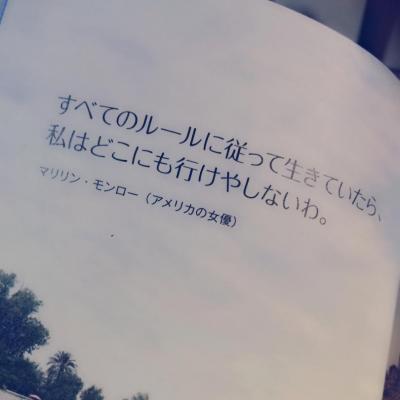 すべてのルールに従って生きていたら、
私はどこにも行けやしないわ。
マリリン・モンロー（アメリカの女優）